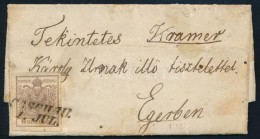 Tekintetes Kramer
Károly Urnak illő tisztelettel
Egerben
JUL.